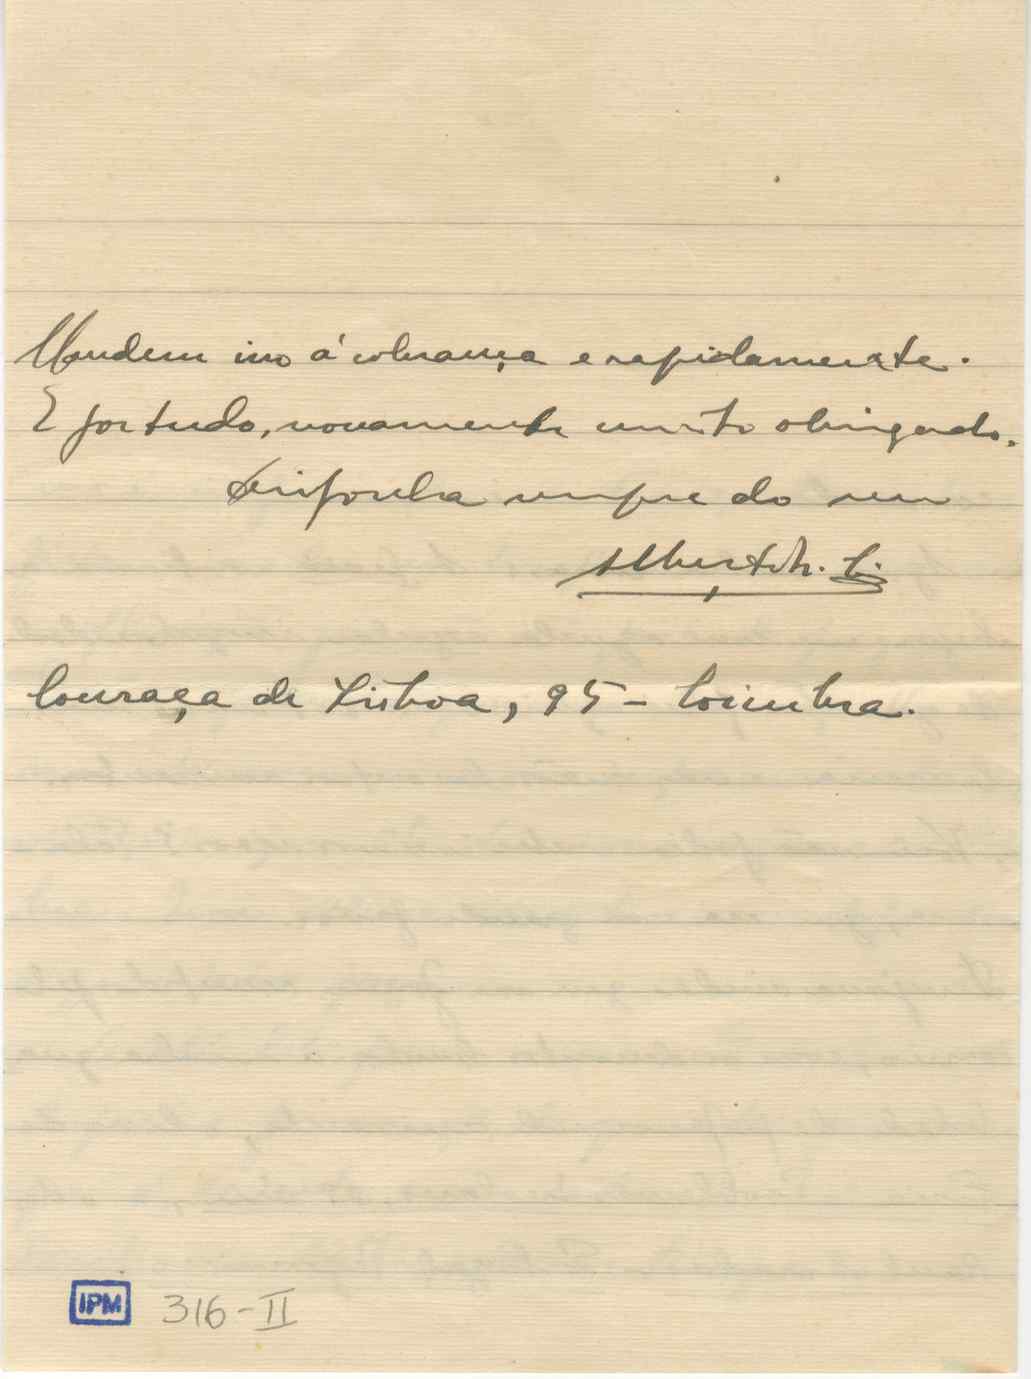 Mandem isso á cobrança e rapidamente.
E por tudo, novamente muito obrigado.
Disponha sempre do seu
Albert
Couraça de Lisboa, 95 – Coimbra.
IPM 316-II